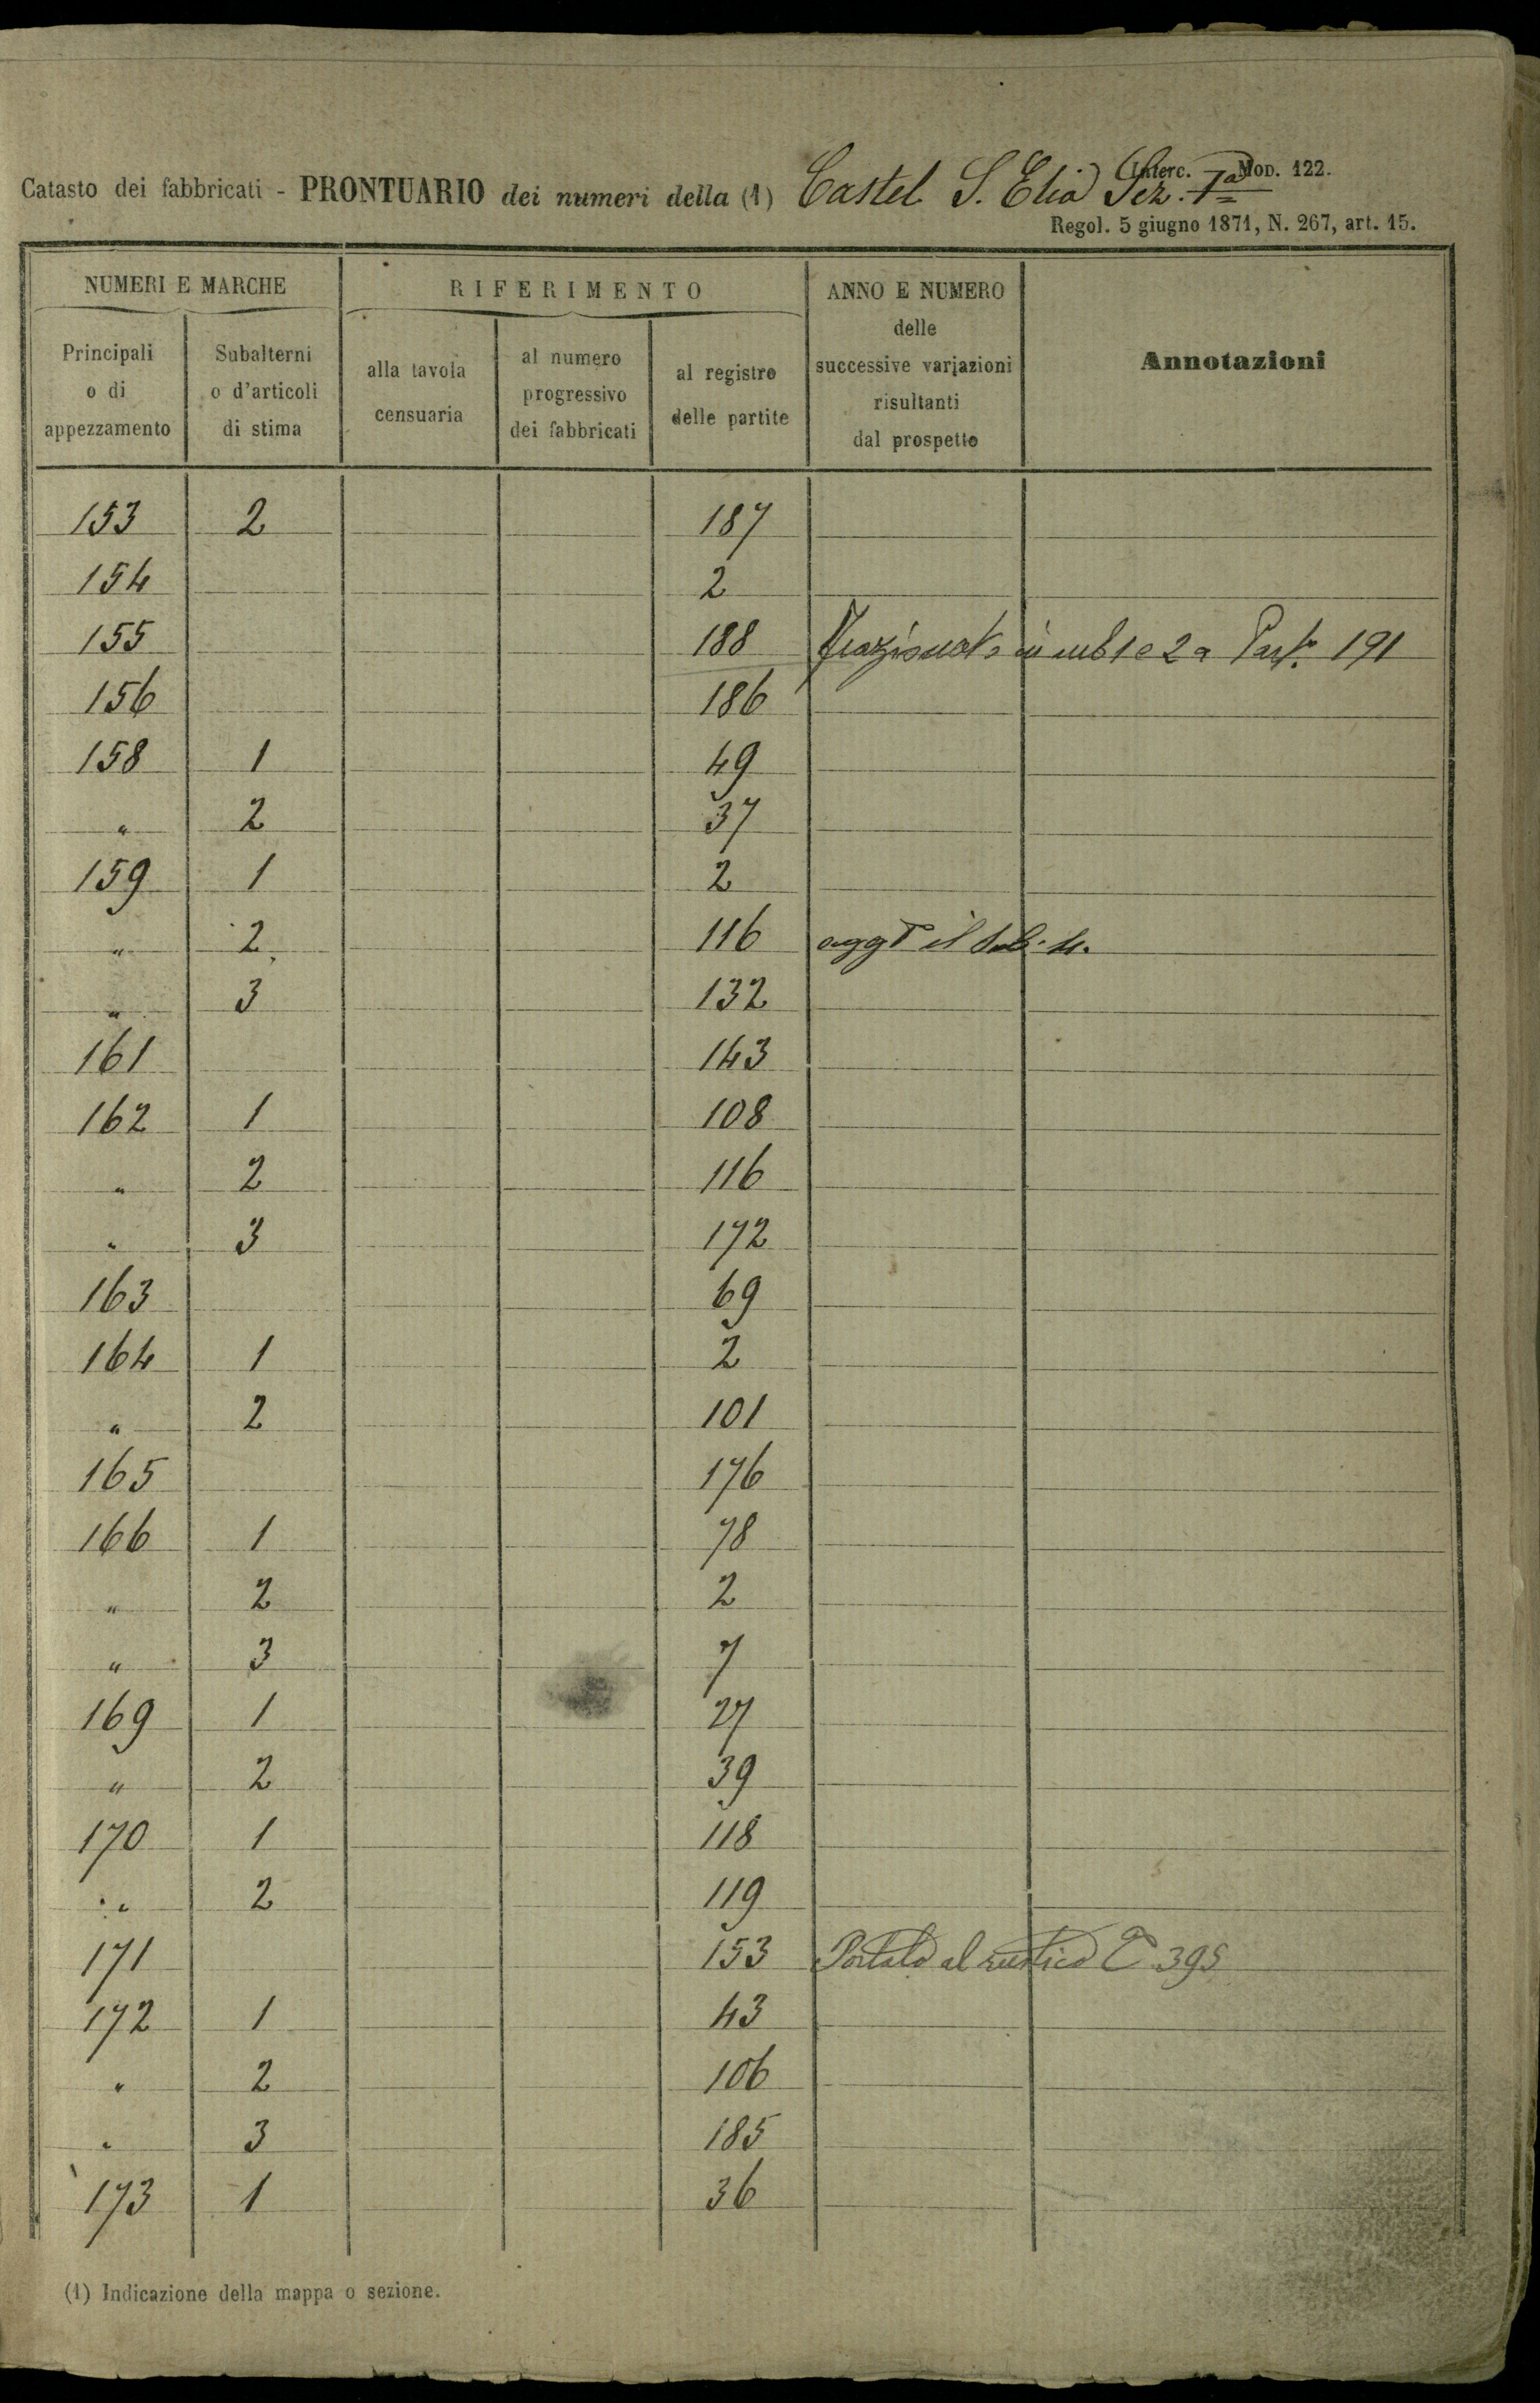 (Interc. Mod. 122.
Catasto dei fabbricati - PRONTUARIO dei numeri della (1) Castel S. Elia Sez. 1ª
Regol. 5 giugno 1871, N. 267, art. 15.
NUMERI E MARCHE RIFERIMENTO ANNO E NUMERO delle successive variazioni risultanti dal prospetto Annotazioni
Principali o di appezzamento Subalterni o d'articoli di stima alla tavola censuaria al numero progressivo dei fabbricati al registro delle partite
153 2 187
154 2
155 188 Frazionato in sub 1 e 2 a Part. 191
156 186
158 1 49
" 2 37
159 1 2
" 2 116 il sub. 4.
" 3 132
161 143
162 1 108
" 2 116
" 3 172
163 69
164 1 2
" 2 101
165 176
166 1 78
" 2 2
" 3 7
169 1 27
" 2 39
170 1 118
" 2 119
171 153 Portato al rustico 395
172 1 43
" 2 106
" 3 185
173 1 36
(1) Indicazione della mappa o sezione.